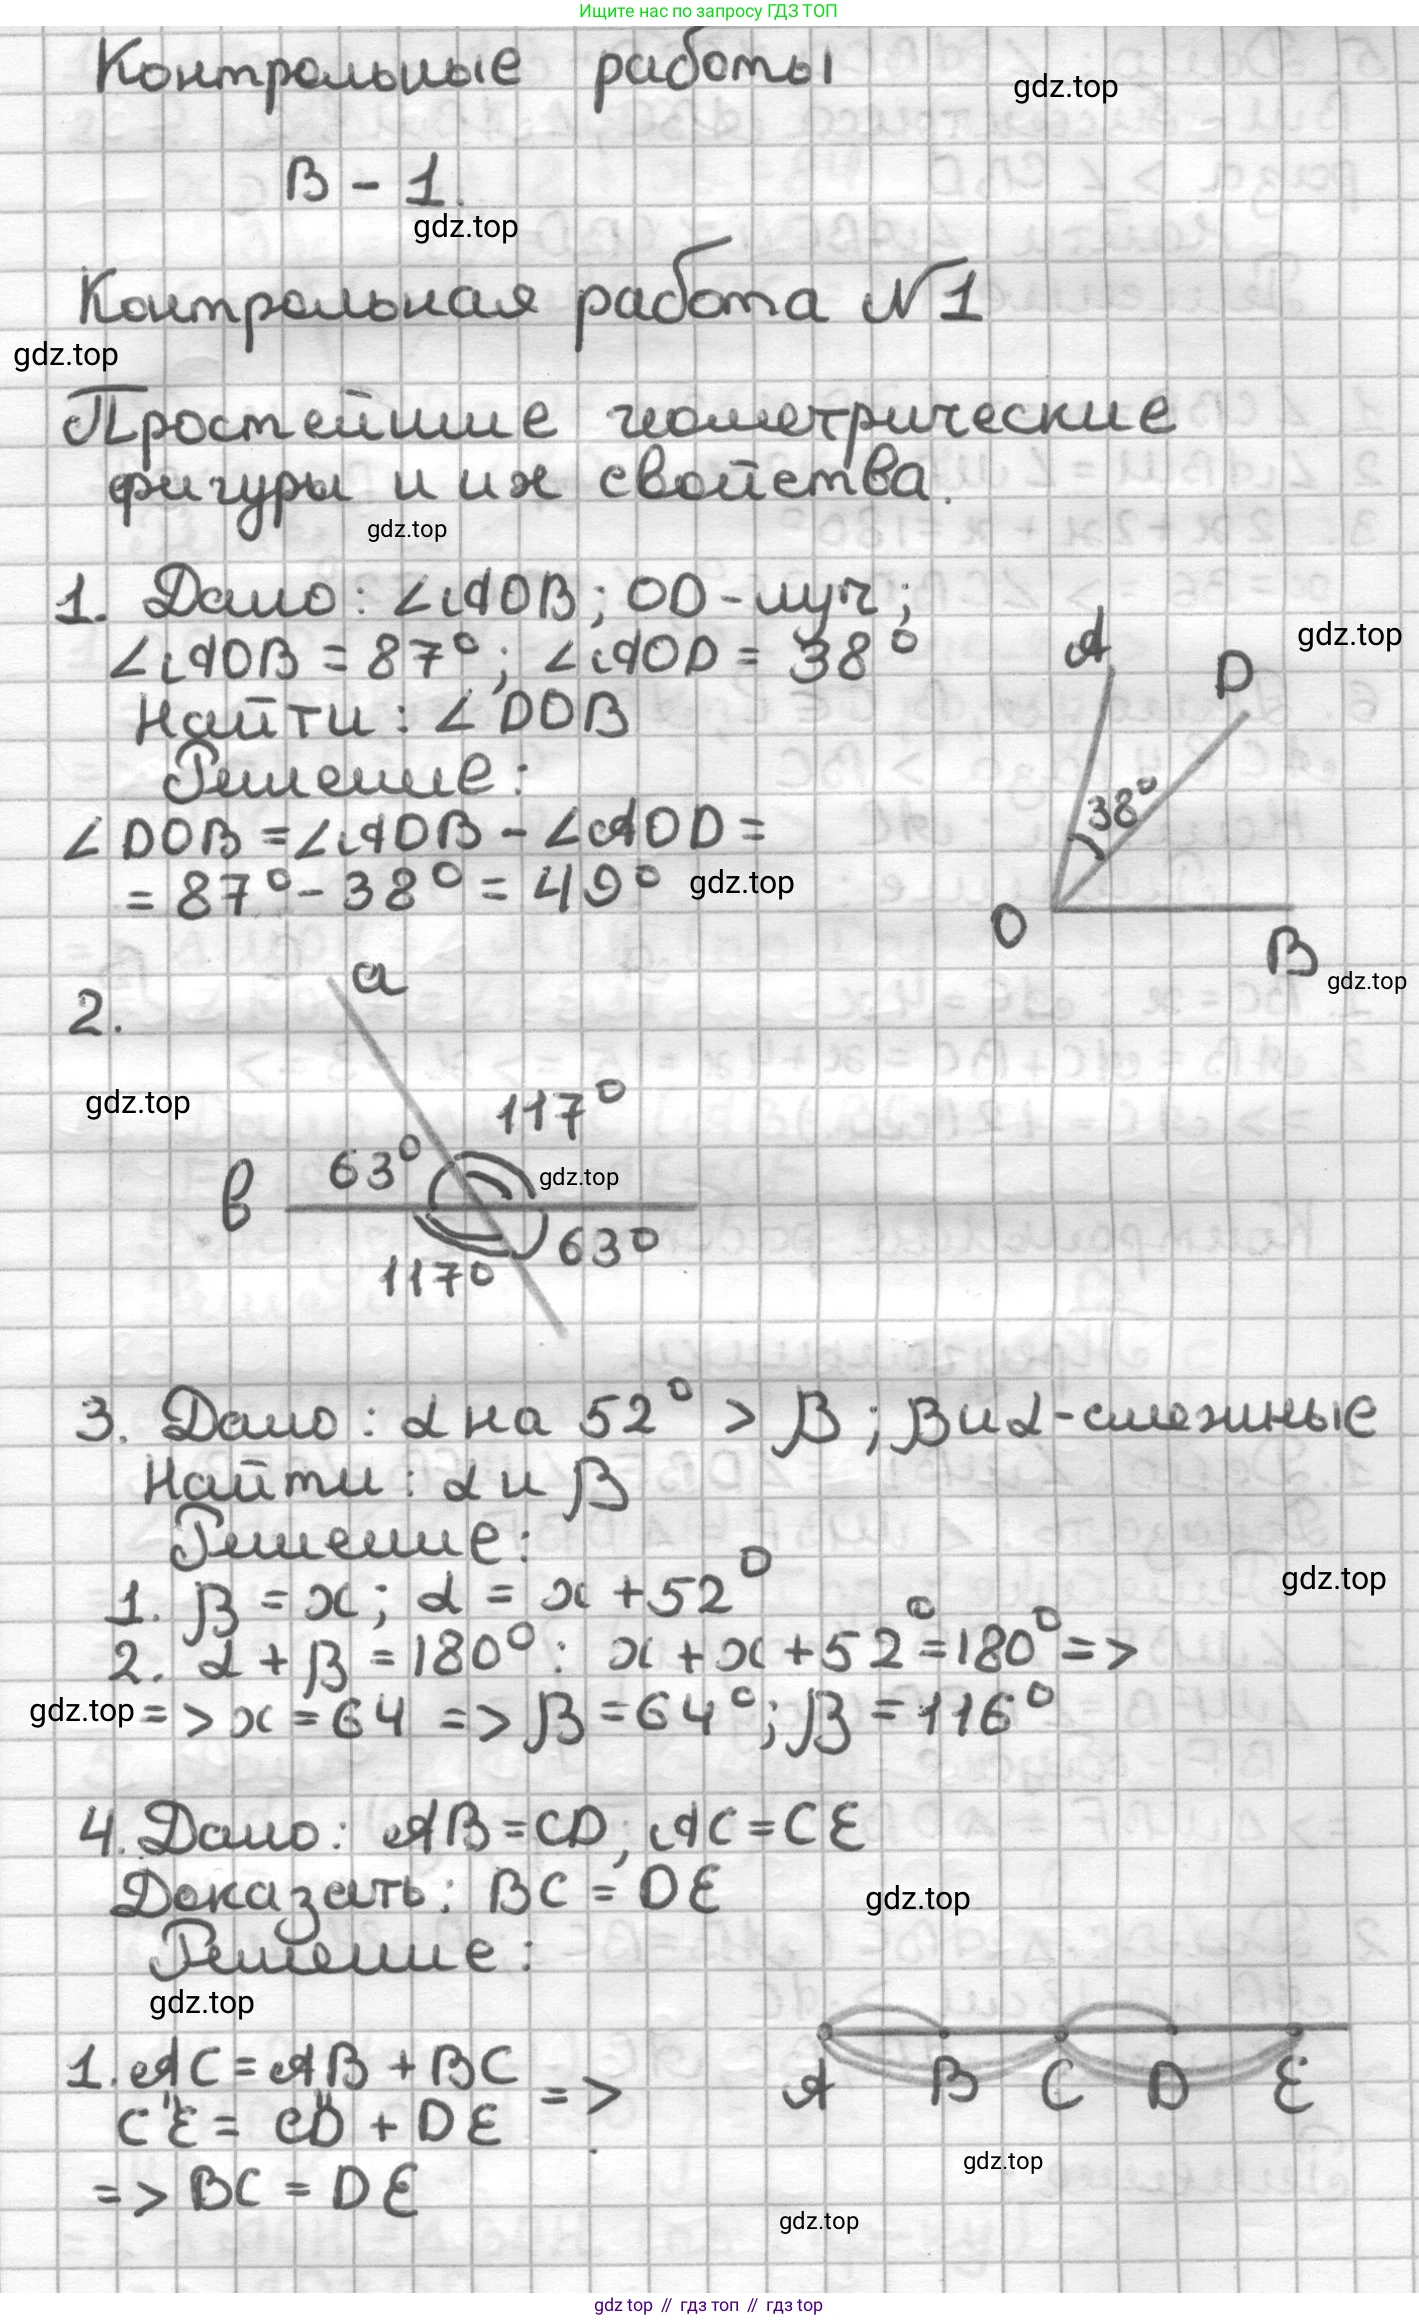 Ищите нас по запросу ГДЗ ТОП
Контрольные работы
gdz.top
В - 1.
gdz.top
Контрольная работа №1
gdz.top
Простейшие геометрические
фигуры и их свойства.
gdz.top
1. Дано: ∠AOB; OD - луч;
∠AOB = 87°; ∠AOD = 38°
gdz.top
A
D
Найти: ∠DOB
Решение:
38°
∠DOB = ∠AOB - ∠AOD =
= 87° - 38° = 49°
gdz.top
O
B
gdz.top
2.
a
gdz.top
117°
63°
gdz.top
в
63°
117°
3. Дано: α на 52° > β; β и α - смежные
Найти: α и β
Решение:
gdz.top
1. β = x; α = x + 52°
2. α + β = 180°: x + x + 52° = 180° =>
gdz.top
=> x = 64 => β = 64°; β = 116°
4. Дано: AB = CD, AC = CE
Доказать: BC = DE
gdz.top
Решение:
gdz.top
1. AC = AB + BC
" "
CE = CD + DE
=>
A B C D E
gdz.top
=> BC = DE
gdz.top
gdz top // гдз топ // gdz top